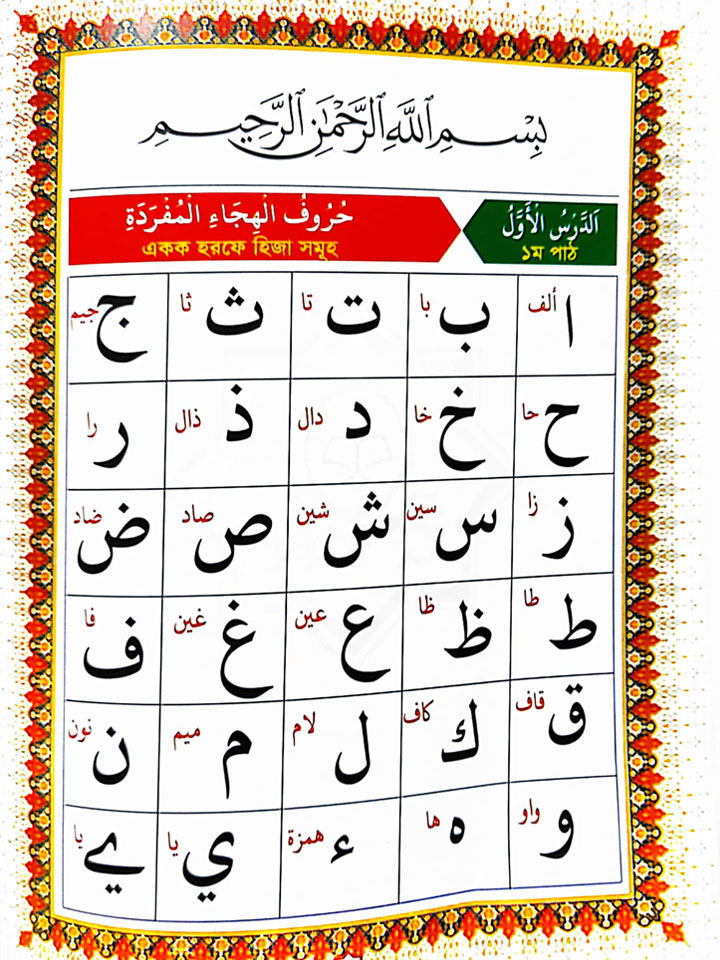 بِسْمِ اللَّهِ الرَّحْمَٰنِ الرَّحِيمِ
اَلدَّرْسُ الْأَوَّلُ حُرُوفُ الْهِجَاءِ الْمُفْرَدَةِ
১ম পাঠ একক হরফে হিজা সমূহ
ا ألف ب با ت تا ث ثا ج جيم
ح حا خ خا د دال ذ ذال ر را
ز زا س سين ش شين ص صاد ض ضاد
ط طا ظ ظا ع عين غ غين ف فا
ق قاف ك كاف ل لام م ميم ن نون
و واو ه ها ء همزة ي يا ے يا